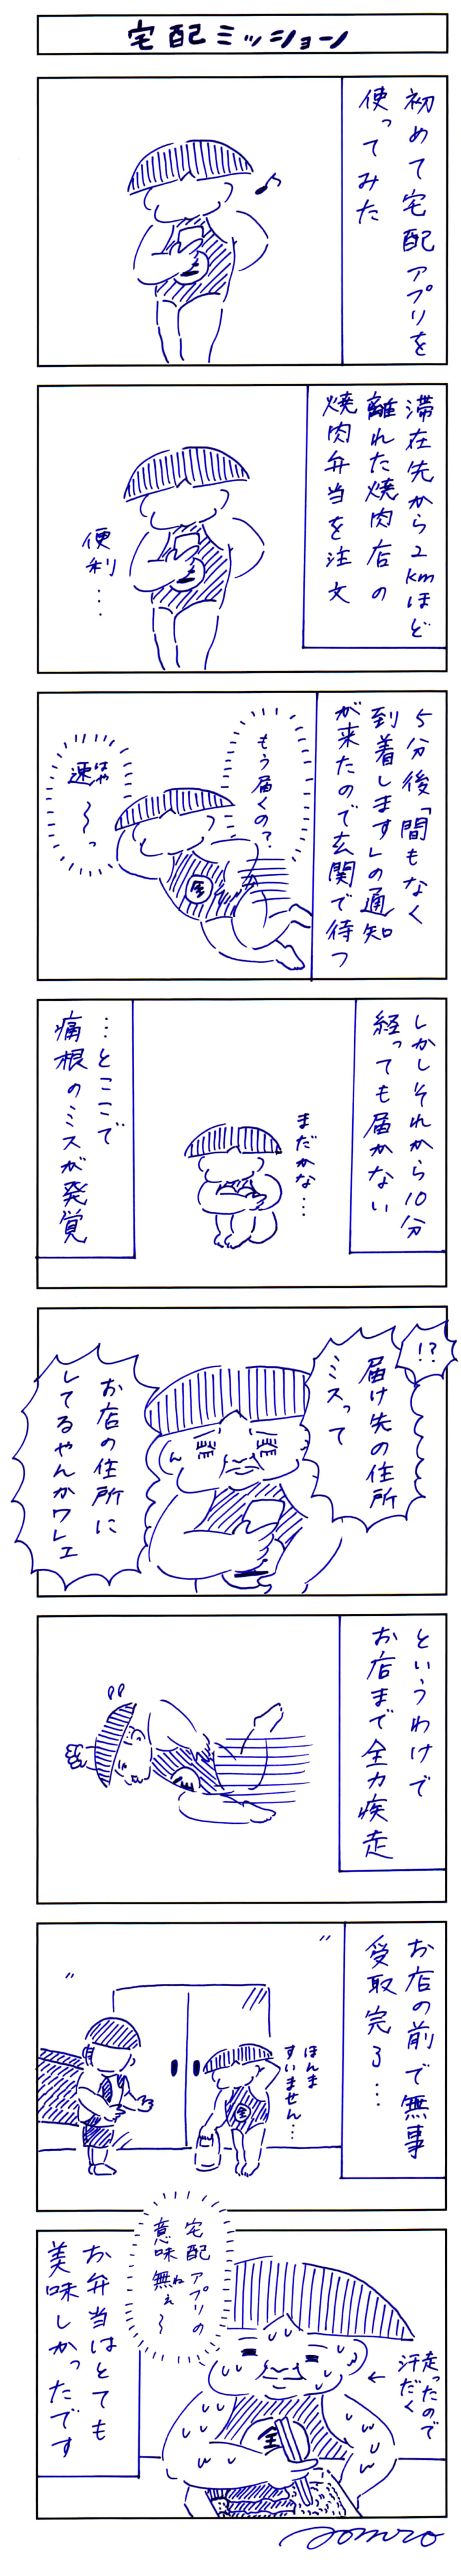 宅配ミッション
初めて宅配アプリを
使ってみた
滞在先から2kmほど
離れた焼肉店の
焼肉弁当を注文
便利…
5分後「間もなく
到着します」の通知
が来たので玄関で待つ
もう届くの?
速
はや
〜っ
金
しかしそれから10分
経っても届かない
まだかな…
…とここで
痛根のミスが発覚
!?
届け先の住所
ミスって
お店の住所に
してるやんかワレェ
というわけで
お店まで全力疾走
お店の前で無事
受取完了…
ほんま
すいません…
金
宅配アプリの
意味無
ねぇ
〜
走ったので
汗だく
金
お弁当はとても
美味しかったです